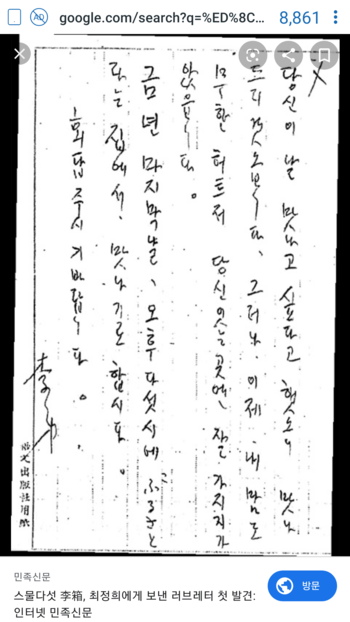 google.com/search?q=%ED%8C... 8,861
당신이 날 맛나고 싶다고 햇으니 맛나
드리겟읍니다、 그러나 이제 내 맘도
무한 허트저 당신 잇는 곳엔 잘 가지지가
않읍니다。
금년 마지막날、 오후 다섯시에 ふるさと
라는 집에서 맛나기로 합시다。
회답주시기 바랍니다。
李箱
文出版社用紙
민족신문
스물다섯 李箱, 최정희에게 보낸 러브레터 첫 발견:
인터넷 민족신문
방문